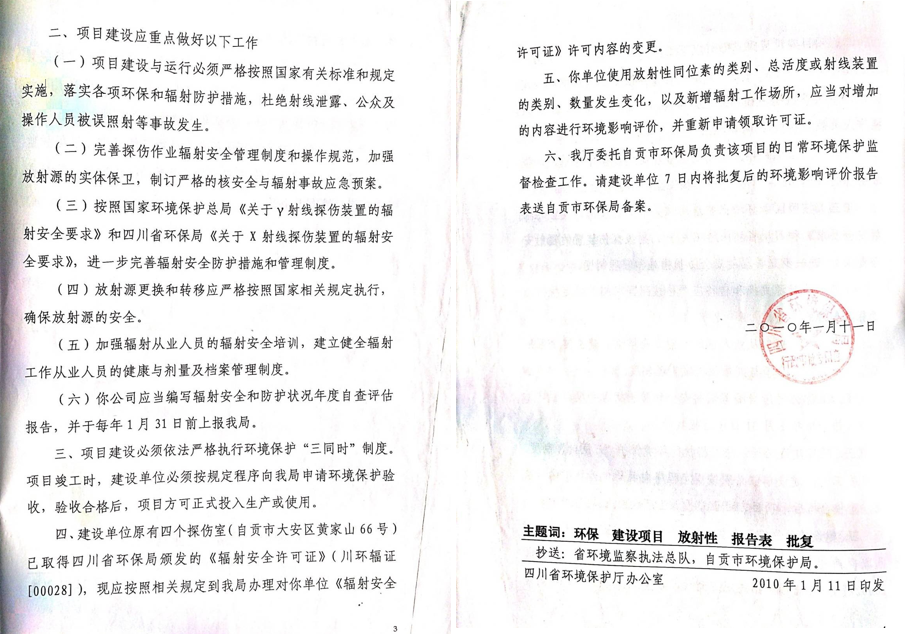 二、项目建设应重点做好以下工作
（一）项目建设与运行必须严格按照国家有关标准和规定
实施，落实各项环保和辐射防护措施，杜绝射线泄露、公众及
操作人员被误照射等事故发生。
（二）完善探伤作业辐射安全管理制度和操作规范，加强
放射源的实体保卫，制订严格的核安全与辐射事故应急预案。
（三）按照国家环境保护总局《关于γ射线探伤装置的辐
射安全要求》和四川省环保局《关于X射线探伤装置的辐射安
全要求》，进一步完善辐射安全防护措施和管理制度。
（四）放射源更换和转移应严格按照国家相关规定执行，
确保放射源的安全。
（五）加强辐射从业人员的辐射安全培训，建立健全辐射
工作从业人员的健康与剂量及档案管理制度。
（六）你公司应当编写辐射安全和防护状况年度自查评估
报告，并于每年1月31日前上报我局。
三、项目建设必须依法严格执行环境保护“三同时”制度。
项目竣工时，建设单位必须按规定程序向我局申请环境保护验
收，验收合格后，项目方可正式投入生产或使用。
四、建设单位原有四个探伤室（自贡市大安区黄家山66号）
已取得四川省环保局颁发的《辐射安全许可证》（川环辐证
[00028]），现应按照相关规定到我局办理对你单位《辐射安全
3
许可证》许可内容的变更。
五、你单位使用放射性同位素的类别、总活度或射线装置
的类别、数量发生变化，以及新增辐射工作场所，应当对增加
的内容进行环境影响评价，并重新申请领取许可证。
六、我厅委托自贡市环保局负责该项目的日常环境保护监
督检查工作。请建设单位7日内将批复后的环境影响评价报告
表送自贡市环保局备案。
二〇一〇年一月十一日
主题词：环保 建设项目 放射性 报告表 批复
抄送：省环境监察执法总队，自贡市环境保护局。
四川省环境保护厅办公室 2010年1月11日印发